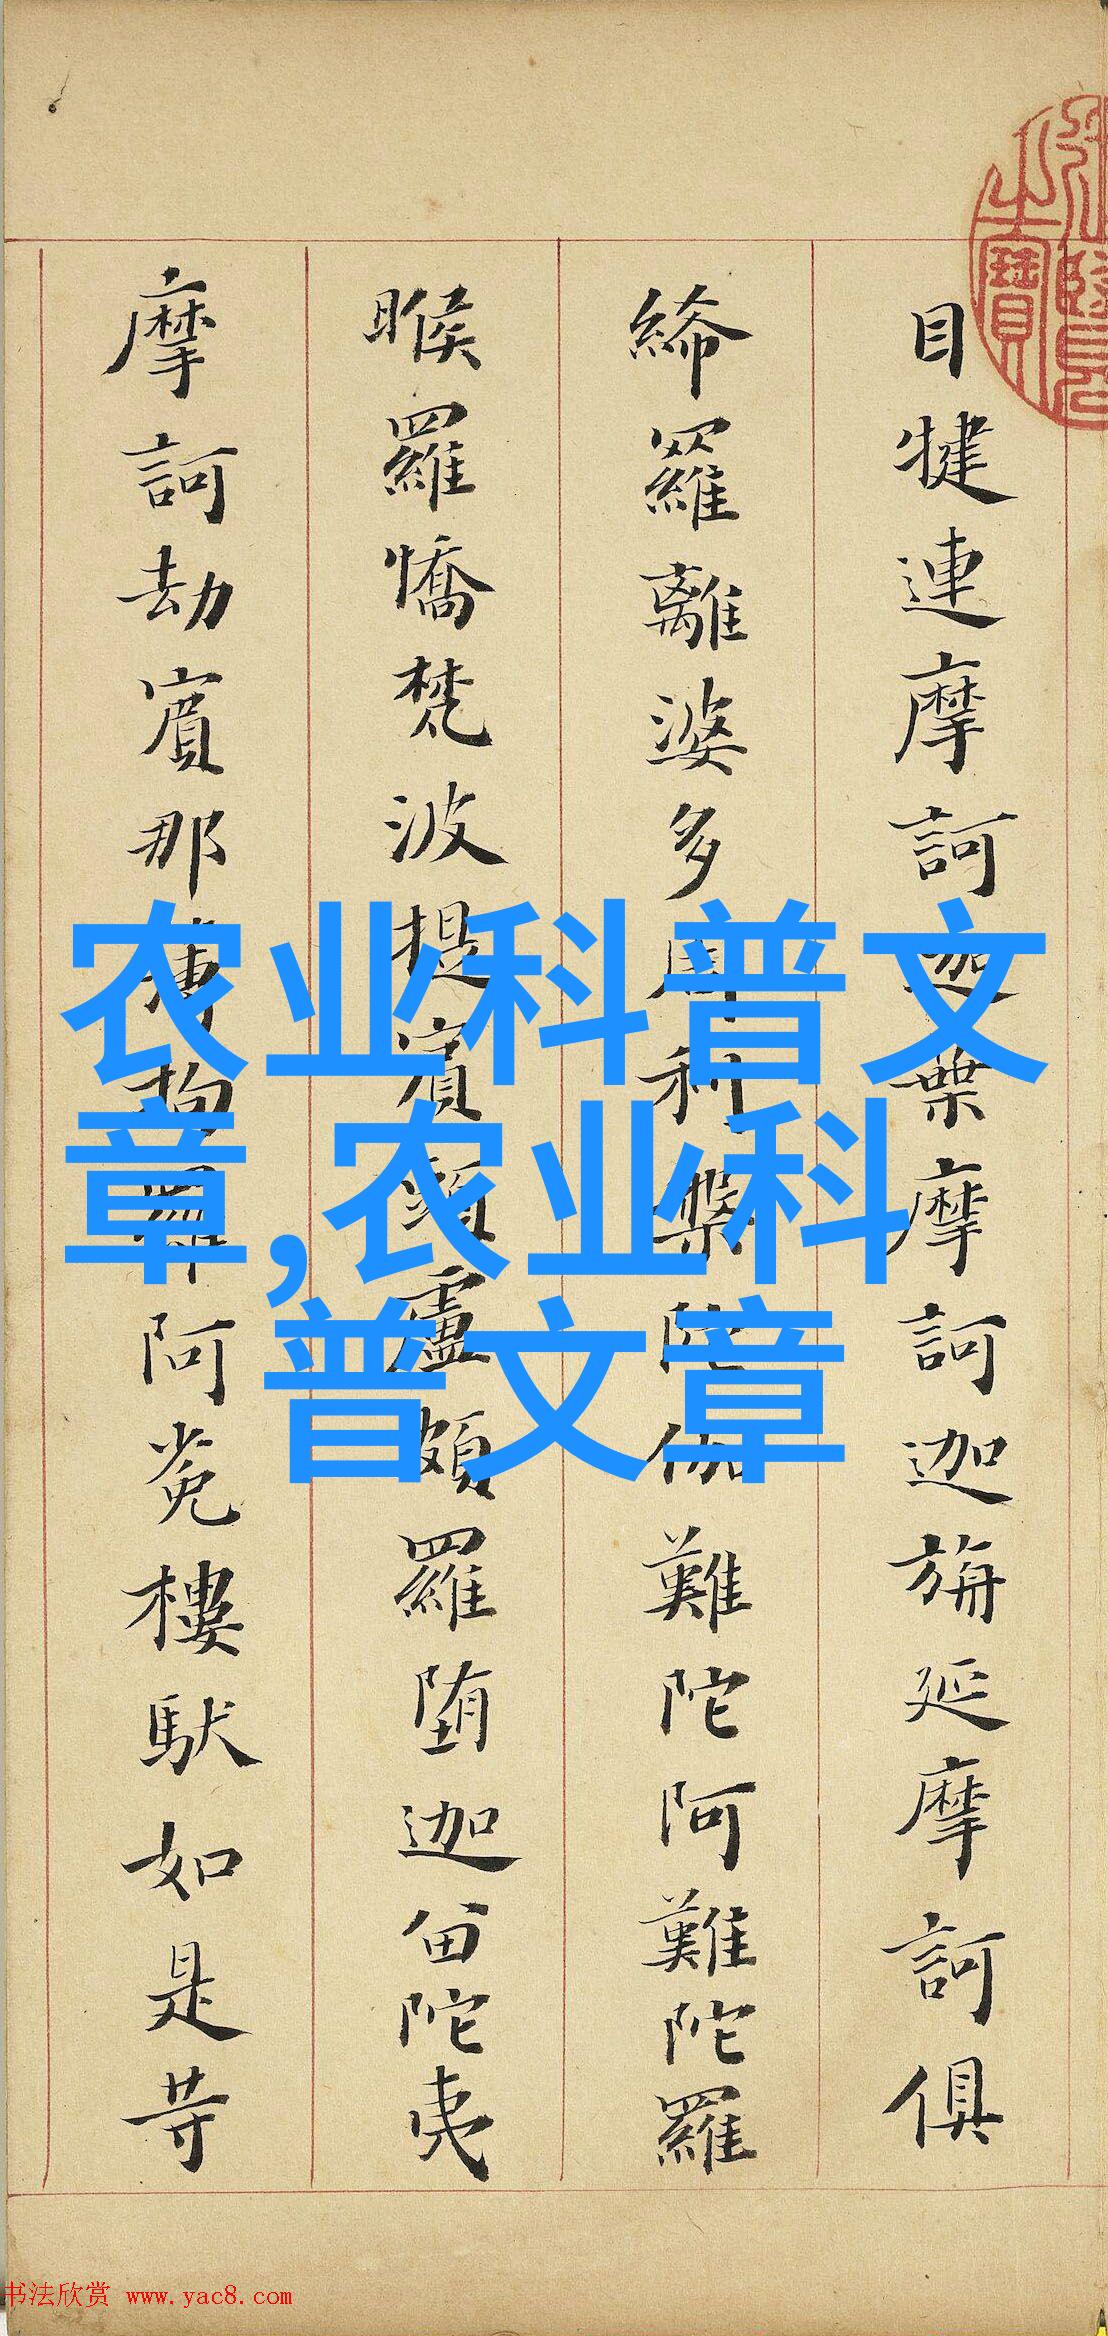 目犍連摩訶迦葉摩訶迦旃延摩訶俱
絺羅離婆多周利槃陀伽難陀阿難陀羅
睺羅憍梵波提賓頭盧頗羅堕迦留陀夷
摩訶劫賓那薄拘羅阿㝹樓馱如是等
农业科普文
章,农业科
普文章
书法欣赏 www.yac8.com